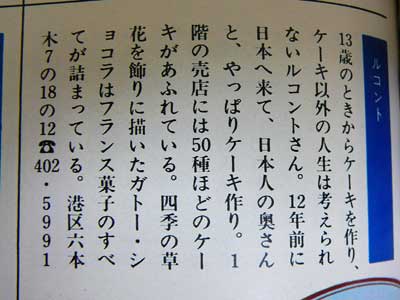 ルコント
13歳のときからケーキを作り、
ケーキ以外の人生は考えられ
ないルコントさん。12年前に
日本へ来て、日本人の奥さん
と、やっぱりケーキ作り。1
階の売店には50種ほどのケー
キがあふれている。四季の草
花を飾りに描いたガトー・シ
ョコラはフランス菓子のすべ
てが詰まっている。港区六本
木7の18の12☎402
・5991